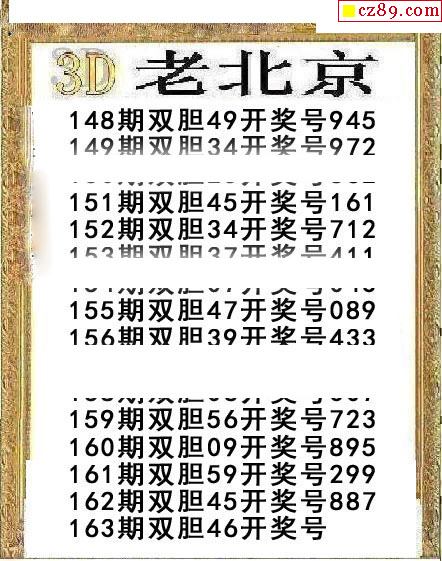 cz89.com
3D 老北京
148期双胆49开奖号945
149期双胆34开奖号972
151期双胆45开奖号161
152期双胆34开奖号712
153期双胆37开奖号411
155期双胆47开奖号089
156期双胆39开奖号433
159期双胆56开奖号723
160期双胆09开奖号895
161期双胆59开奖号299
162期双胆45开奖号887
163期双胆46开奖号